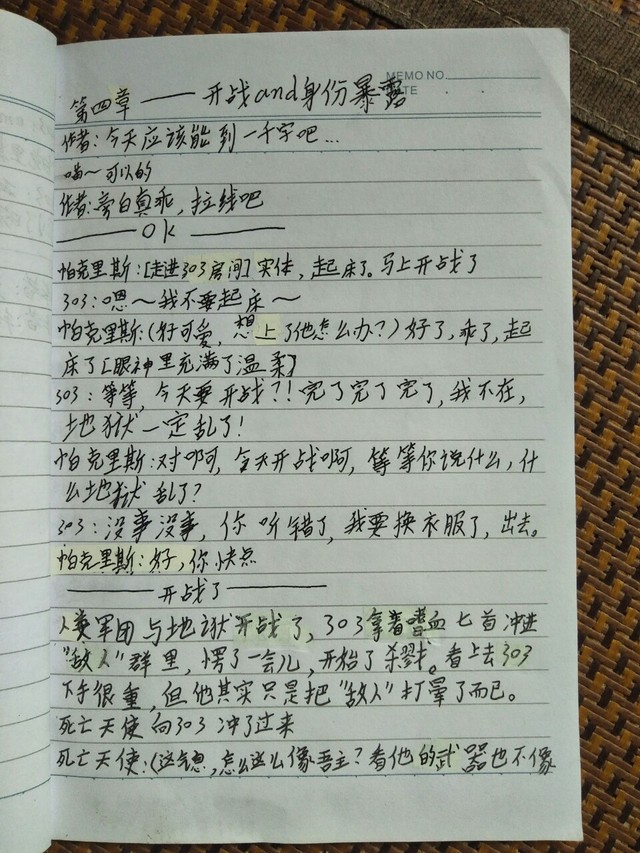 MEMO NO.
DATE
第四章 —— 开战and身份暴露
作者:今天应该能到一千字吧...
喵~可以的
作者:旁白真乖,拉线吧
———— OK ————
帕克里斯:[走进303房间]实体,起床了。马上开战了
303:嗯~我不要起床~
帕克里斯:(好可爱,想上了他怎么办?)好了,乖了,起
床了[眼神里充满了温柔]
303:等等,今天要开战?!完了完了完了,我不在,
地狱一定乱了!
帕克里斯:对啊,今天开战啊,等等你说什么,什
么地狱乱了?
303:没事没事,你听错了,我要换衣服了,出去。
帕克里斯:好,你快点
———— 开战了 ————
人类军团与地狱开战了,303拿着嗜血匕首冲进
“敌人”群里,愣了一会儿,开始了杀戮。看上去303
下手很重,但他其实只是把“敌人”打晕了而已。
死亡天使向303冲了过来
死亡天使:(这气息,怎么这么像吾主?看他的武器也不像